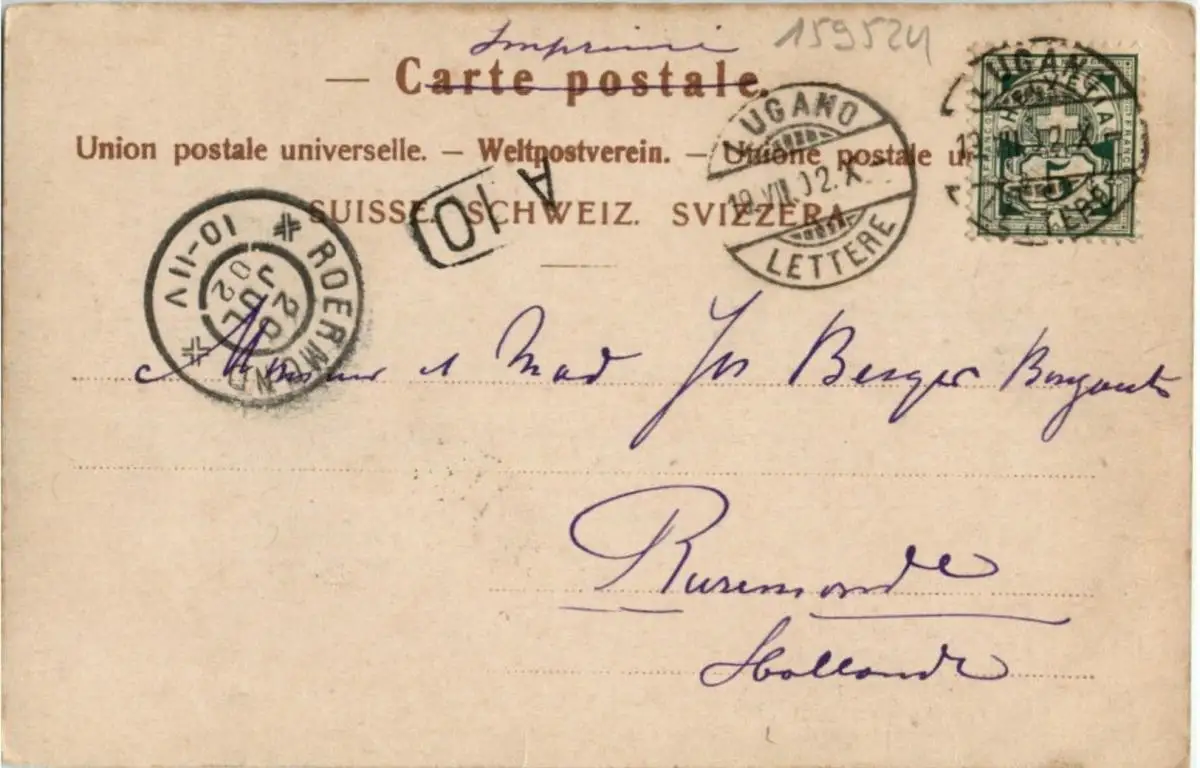 Imprimé
159524
— Carte postale.
Union postale universelle. — Weltpostverein. — Unione postale un
SUISSE. SCHWEIZ. SVIZZERA
LUGANO
19.VII.02.X
LETTERE
LUGANO
HELVETIA
FRANCO
5
LETTERE
A
10
ROERMOND
20
JUL
02
10-11V
Monsieur et Mad Jos Berger
Ruremonde
Hollande